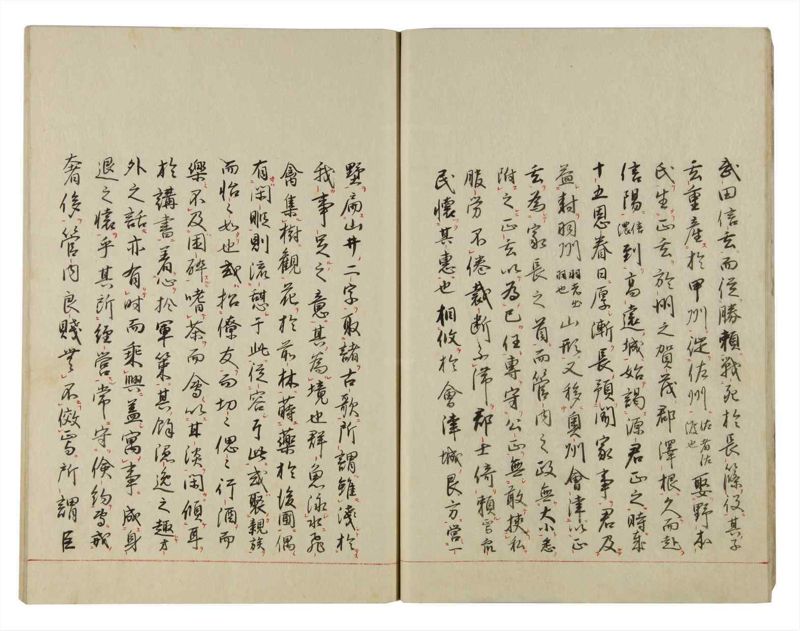 武田信玄而從勝頼戰死於長篠役其子
玄重產於甲州從佐州佐者佐渡也娶野本
氏生正玄於州之賀茂郡澤根久而赴
信陽信濃到高遠城始謁源君正之時年
十五恩眷日厚漸長預聞家事君及
益封羽州羽者出羽也山形又移奧州會津以正
玄為家長之首而管内之政無大小悉
附之正玄以為己任專守公正無敢挾私
服労不倦裁断不滞郡士倚頼焉
民懷其惠也相攸於會津城艮方営一
墅扁山井二字取諸古歌所謂雖淺於
我事足之意其為境也群魚泳水飛
禽集樹觀花於前林蒔藥於後圃偶
有閑暇則流憩于此從容于此或聚親族
而怡々如也或招僚友而切々偲々行酒而
樂不及困醉嗜茶而會以其淡閑傾耳
於講書着心於軍策其餘隠逸之趣方
外之話亦有时而乘興蓋寓事成身
退之懷乎其所經営常守儉約戒
奢侈管内良賤無不傚焉所謂臣